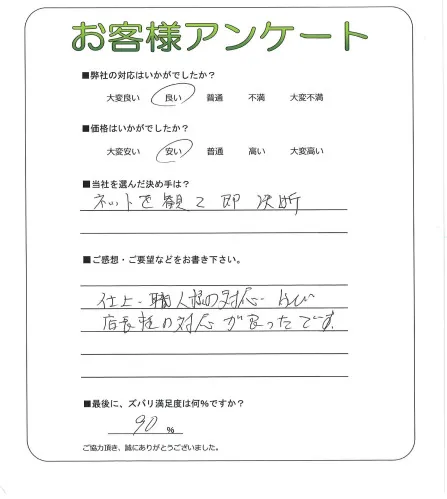 お客様アンケート
■弊社の対応はいかがでしたか？
大変良い 良い 普通 不満 大変不満
■価格はいかがでしたか？
大変安い 安い 普通 高い 大変高い
■当社を選んだ決め手は？
ネットを観て即決断
■ご感想・ご要望などをお書き下さい。
仕上・職人様の対応・
店長様の対応が良ったです。
■最後に、ズバリ満足度は何%ですか？
90 %
ご協力頂き、誠にありがとうございました。